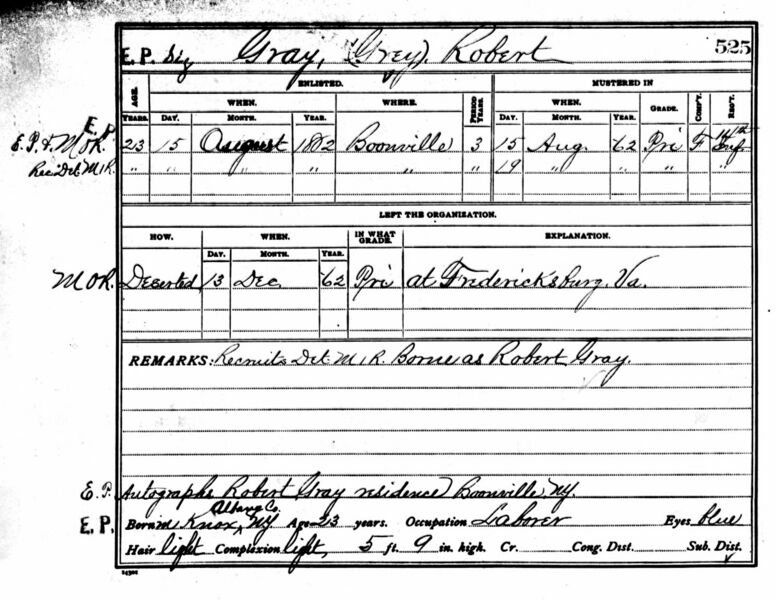 E.P. Sig Gray, (Grey). Robert 525
AGE. ENLISTED. MUSTERED IN
WHEN. WHERE. PERIOD YEARS. WHEN. GRADE. COMP'Y. REG'T.
YEARS. DAY. MONTH. YEAR. DAY. MONTH. YEAR.
E.P.
E.P. & M O R. 23 15 August 1862 Boonville 3 15 Aug. 62 Pri F 14th Inf
Rec. Det. M.R. " " " " " " 19 " " " " "
LEFT THE ORGANIZATION.
HOW. WHEN. IN WHAT GRADE. EXPLANATION.
DAY. MONTH. YEAR.
M O R. Deserted 13 Dec 62 Pri at Fredericksburg, Va.
REMARKS: Recruits Det. M.R. Borne as Robert Gray.
E.P. Autographs Robert Gray residence Boonville, NY.
Albany Co.
E.P. Born in Knox, NY Age 23 years. Occupation Laborer Eyes blue
Hair light Complexion light, 5 ft. 9 in. high. Cr. Cong. Dist. Sub. Dist.